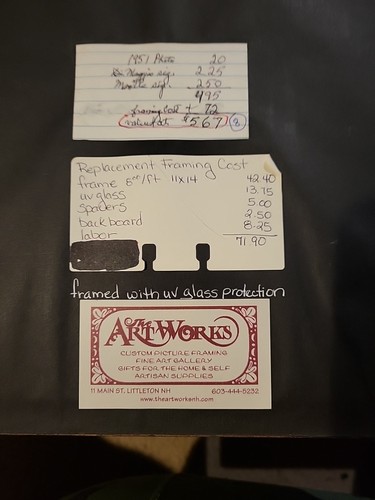 1951 Photo 20
Di Maggio sig. 225
Mantle sig. 250
495
framing cost + 72
valued at $567 2
Replacement Framing Cost
frame 5⁰⁰/ft 11x14 42.40
uv glass 13.75
spacers 5.00
backboard 2.50
labor 8.25
71.90
framed with uv glass protection
The
ARTWORKS
CUSTOM PICTURE FRAMING
FINE ART GALLERY
GIFTS FOR THE HOME & SELF
ARTISAN SUPPLIES
11 MAIN ST. LITTLETON NH 603-444-5232
www.theartworksnh.com